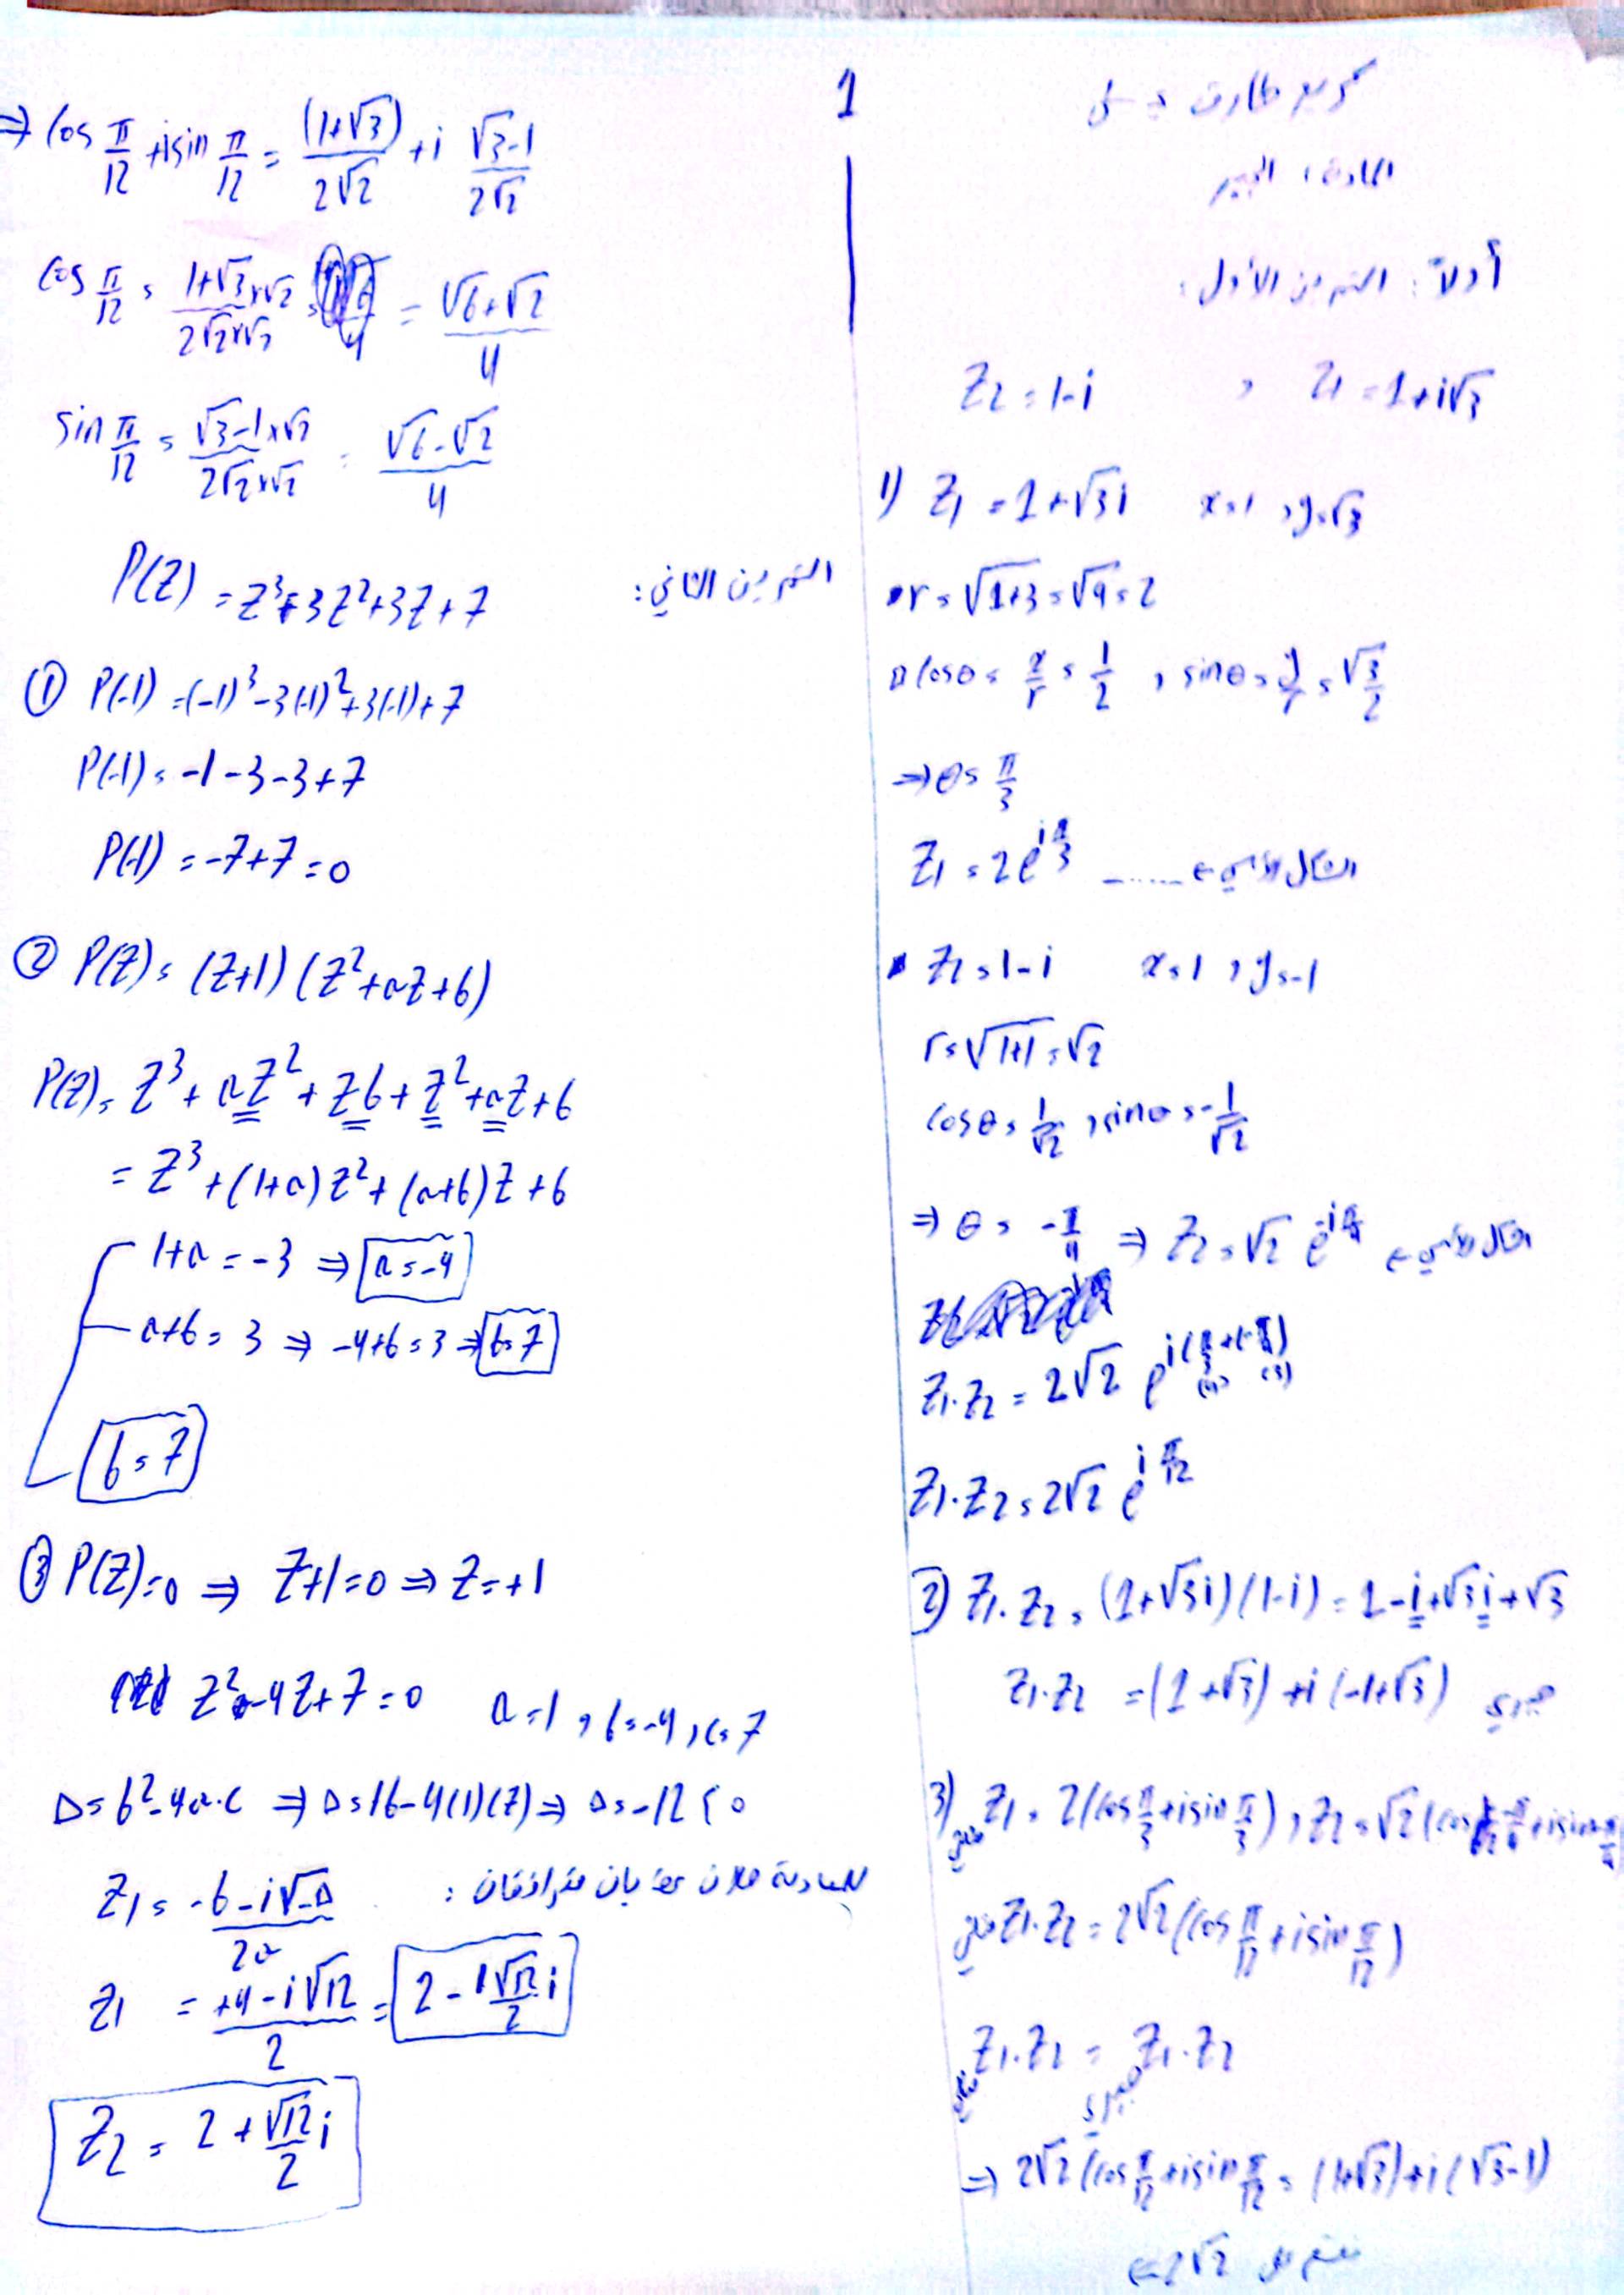 1
المادة: الجبر
أولاً: التمرين الأول:
Z2 = 1-i , Z1 = 1+i√3
1) Z1 = 1+√3i x=1 , y=√3
r = √(1+3) = √4 = 2
cosθ = x/r = 1/2 , sinθ = y/r = √3/2
⇒ θ = π/3
Z1 = 2e^(iπ/3) ...... ← الشكل الأسي
Z2 = 1-i x=1 , y=-1
r = √(1+1) = √2
cosθ = 1/√2 , sinθ = -1/√2
⇒ θ = -π/4 ⇒ Z2 = √2 e^(-iπ/4) ← الشكل الأسي
Z1.Z2 = 2√2 e^(i(π/3+(-π/4))) (4) (3)
Z1.Z2 = 2√2 e^(iπ/12)
2) Z1.Z2 = (1+√3i)(1-i) = 1-i+√3i+√3
Z1.Z2 = (1+√3)+i(-1+√3) جبري
3) Z1 = 2(cos π/3 + isin π/3) , Z2 = √2(cos -π/4 + isin -π/4) مثلثي
مثلثي Z1.Z2 = 2√2(cos π/12 + isin π/12)
Z1.Z2 = Z1.Z2
مثلثي جبري
⇒ 2√2(cos π/12 + isin π/12 = (1+√3)+i(√3-1)
نقسم على 2√2 ←
⇒ cos π/12 + isin π/12 = (1+√3)/2√2 + i (√3-1)/2√2
cos π/12 = (1+√3×√2)/(2√2×√2) = (√6+√2)/4
sin π/12 = (√3-1×√2)/(2√2×√2) = (√6-√2)/4
التمرين الثاني:
P(Z) = Z³-3Z²+3Z+7
① P(-1) = (-1)³-3(-1)²+3(-1)+7
P(-1) = -1-3-3+7
P(-1) = -7+7 = 0
② P(Z) = (Z+1)(Z²+aZ+b)
P(Z) = Z³+aZ²+Zb+Z²+aZ+b
= Z³+(1+a)Z²+(a+b)Z+b
1+a = -3 ⇒ a = -4
a+b = 3 ⇒ -4+b = 3 ⇒ b = 7
b = 7
③ P(Z)=0 ⇒ Z+1=0 ⇒ Z=+1
Z²-4Z+7=0 a=1 , b=-4 , c=7
Δ = b²-4a.c ⇒ Δ = 16-4(1)(7) ⇒ Δ = -12 < 0
للمعادلة حلان عقديان مترافقان:
Z1 = (-b-i√-Δ)/2a
Z1 = (+4-i√12)/2 = 2-√12/2 i
Z2 = 2+√12/2 i